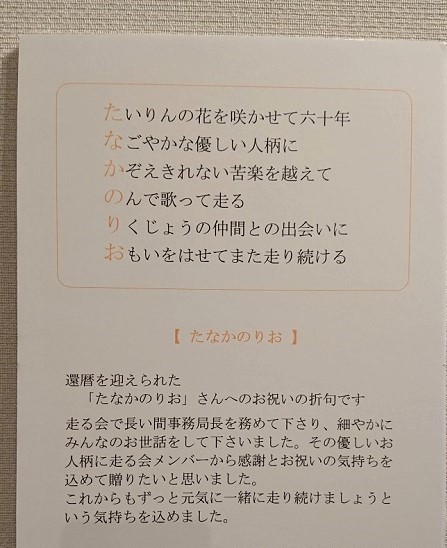 たいりんの花を咲かせて六十年
なごやかな優しい人柄に
かぞえきれない苦楽を越えて
のんで歌って走る
りくじょうの仲間との出会いに
おもいをはせてまた走り続ける
【 たなかのりお 】
還暦を迎えられた
「たなかのりお」さんへのお祝いの折句です
走る会で長い間事務局長を務めて下さり、細やかに
みんなのお世話をして下さいました。その優しいお
人柄に走る会メンバーから感謝とお祝いの気持ちを
込めて贈りたいと思いました。
これからもずっと元気に一緒に走り続けましょうと
いう気持ちを込めました。